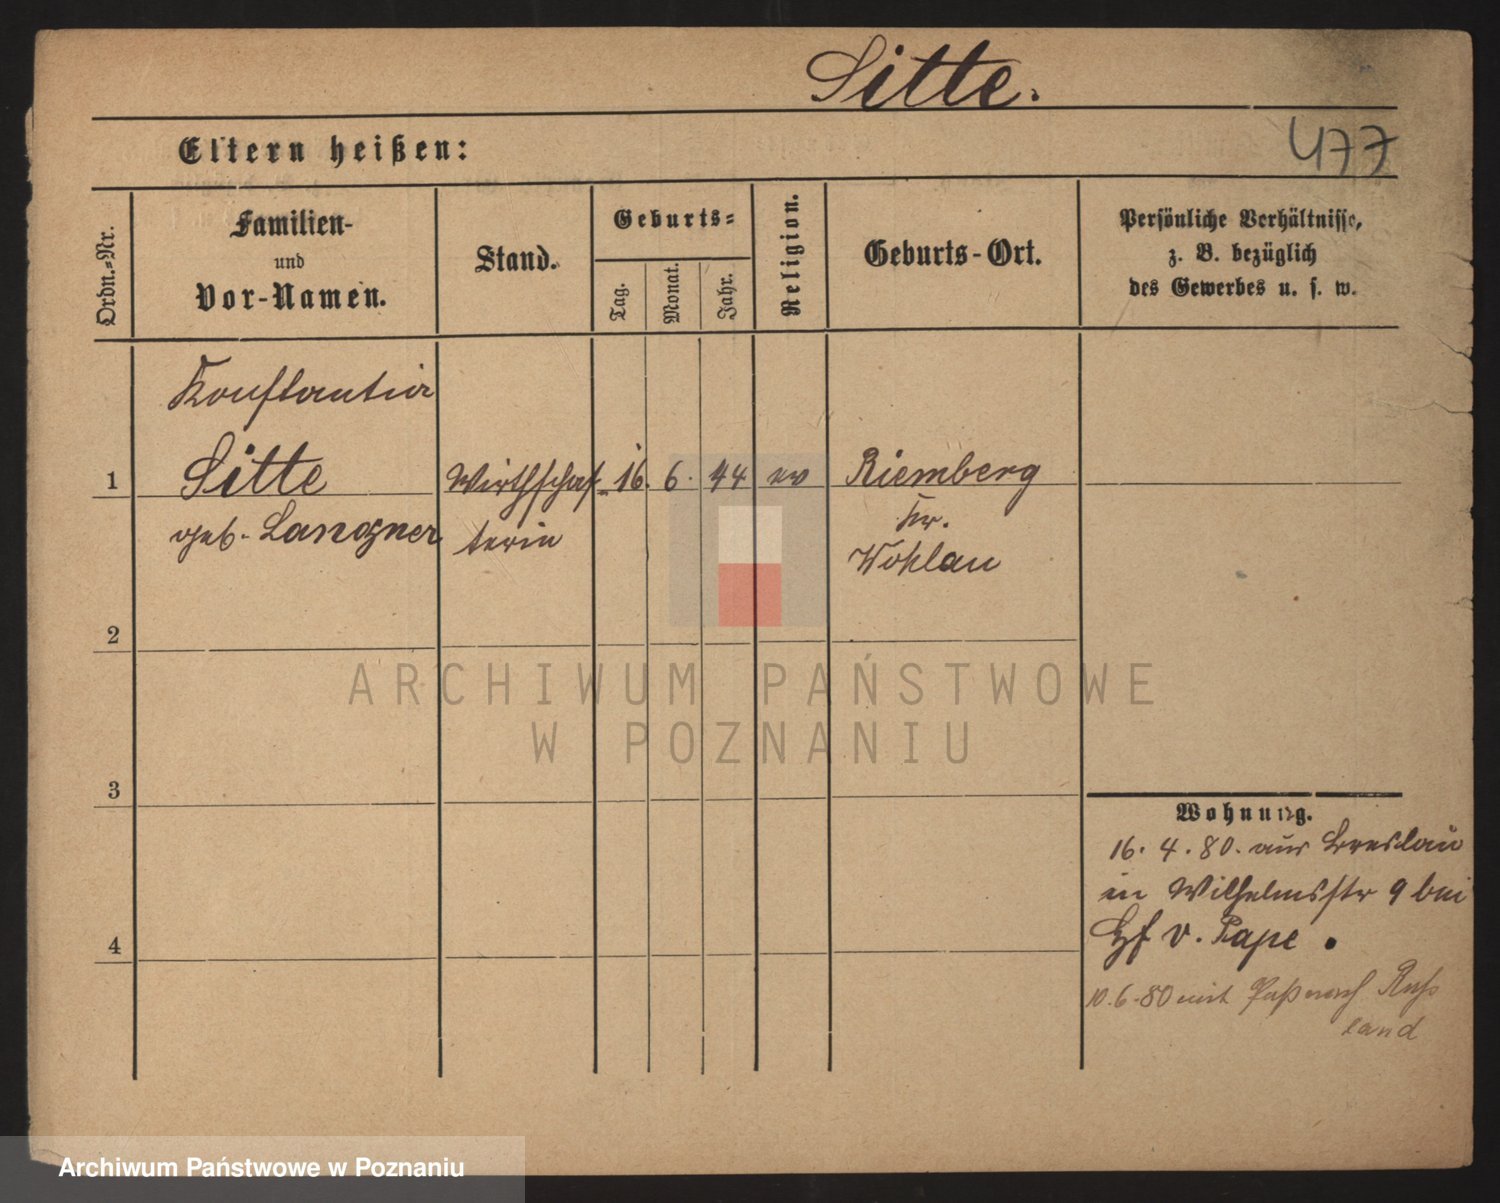 Sitte.
477
Eltern heißen:
Ordn.=Nr.
Familien-
und
Vor-Namen.
Stand.
Geburts=
Tag.
Monat.
Jahr.
Religion.
Geburts-Ort.
Persönliche Verhältnisse,
z. B. bezüglich
des Gewerbes u. s. w.
Konstantia
1 Sitte Wirthschaf 16. 6. 44 ev Riemberg
geb. Langner terin Kr.
Wohlau
2
ARCHIWUM PAŃSTWOWE
W POZNANIU
3
Wohnung.
16. 4. 80. aus Breslau
in Wilhelmsstr 9 bei
v. Pape
4
10.6.80 mit Paß nach Russ
land
Archiwum Państwowe w Poznaniu